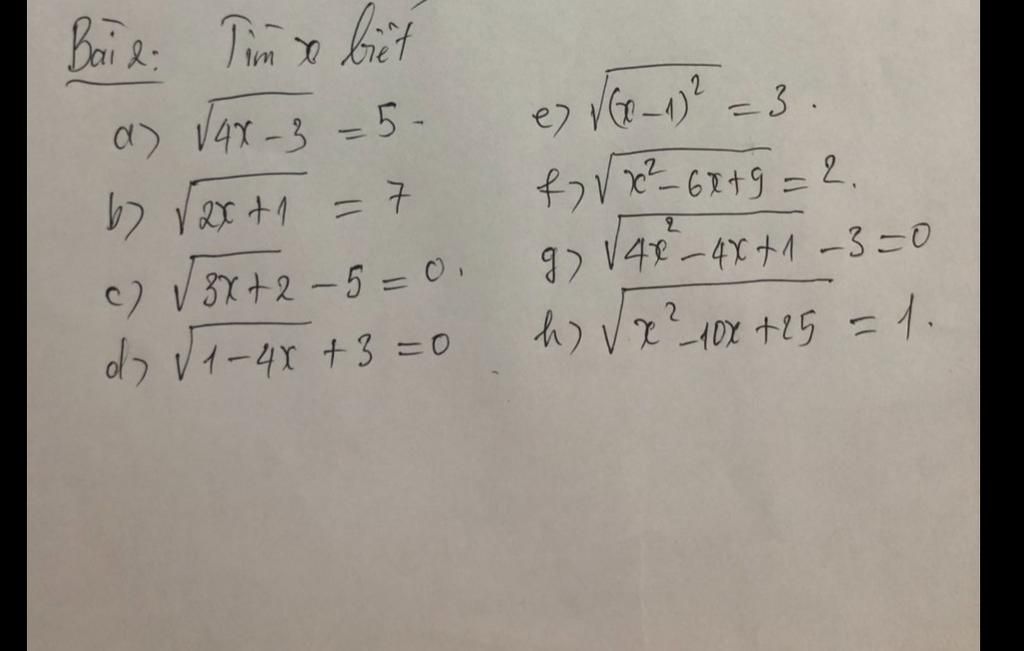 Bài 2: Tìm x biết
a) √(4x - 3) = 5
b) √(2x + 1) = 7
c) √(3x + 2) - 5 = 0.
d) √(1 - 4x) + 3 = 0
e) √((x - 1)²) = 3.
f) √(x² - 6x + 9) = 2.
g) √(4x² - 4x + 1) - 3 = 0
h) √(x² - 10x + 25) = 1.